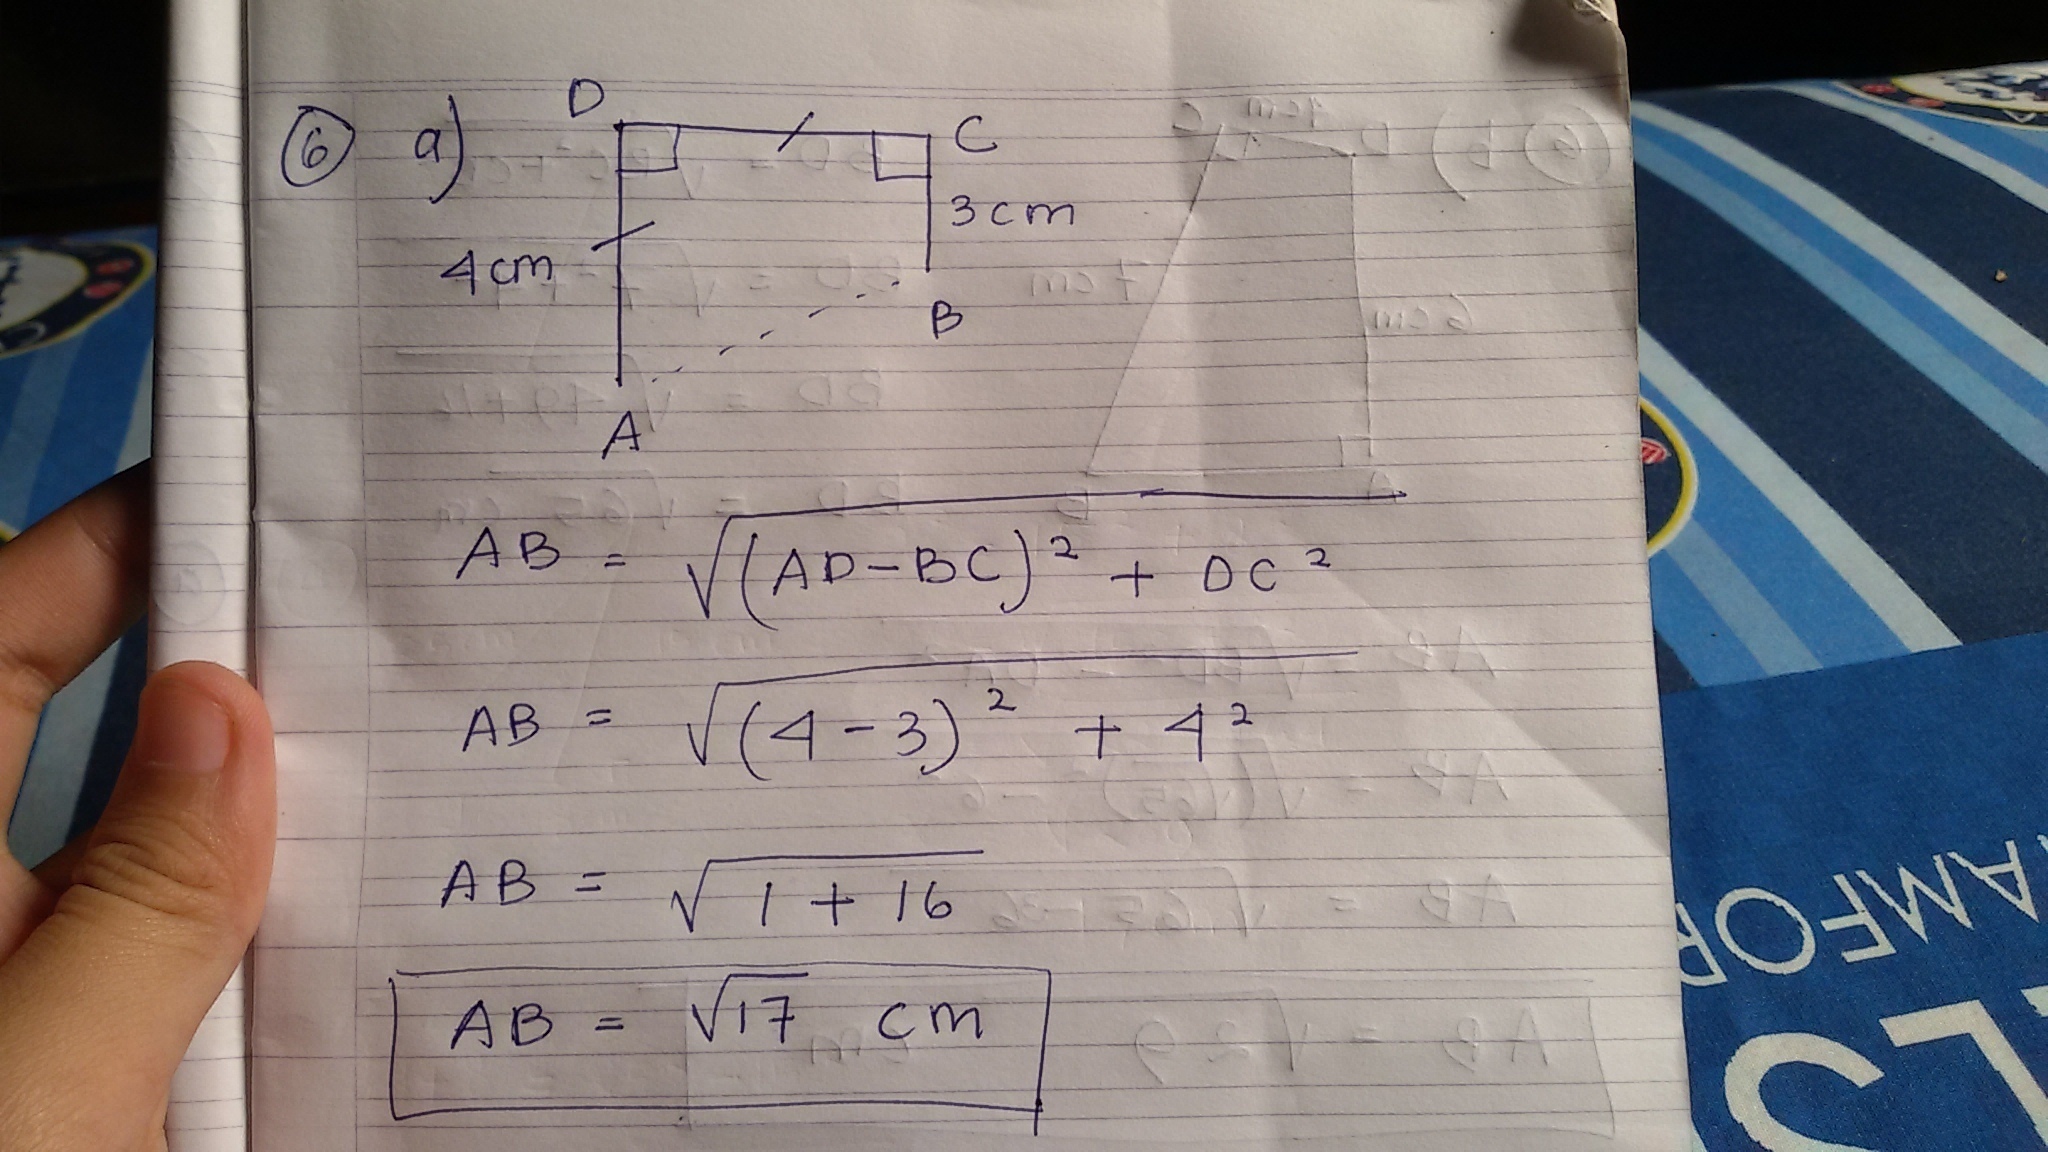 6 a)
D
C
3cm
4cm
B
A
AB = √(AD-BC)² + DC²
AB = √(4-3)² + 4²
AB = √1 + 16
AB = √17 cm